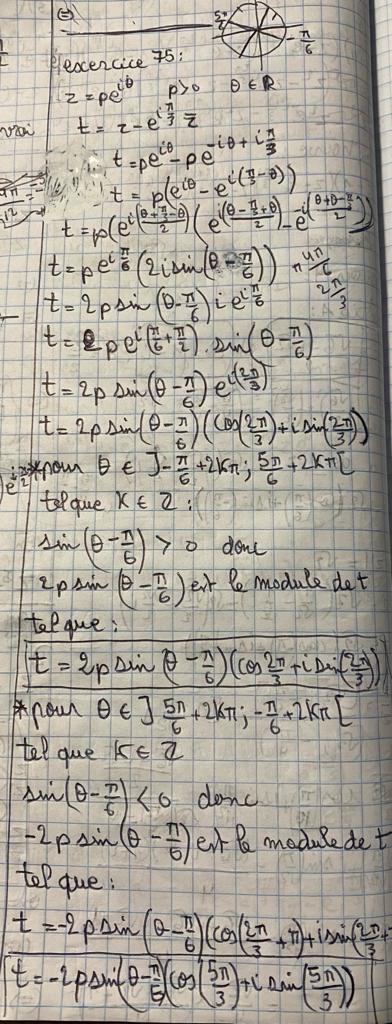 5π/6
-π/6
exercice 75:
z = pe^{iθ} p>0 θ ∈ R
t = z - e^{iπ/3} z̄
t = pe^{iθ} - pe^{-iθ + iπ/3}
t = p(e^{iθ} - e^{i(π/3 - θ)})
t = p(e^{i(θ+π/3-θ)/2}(e^{i(θ-π/3+θ)/2} - e^{-i(θ+θ-π/3)/2}))
t = p e^{iπ/6} (2i sin(θ - π/6))
4π/6
2π/3
t = 2p sin(θ - π/6) i e^{iπ/6}
t = 2p e^{i(π/6 + π/2)} . sin(θ - π/6)
t = 2p sin(θ - π/6) e^{i(2π/3)}
t = 2p sin(θ - π/6) (cos(2π/3) + i sin(2π/3))
*pour θ ∈ ]-π/6 + 2Kπ ; 5π/6 + 2Kπ[
tel que K ∈ Z :
sin(θ - π/6) > 0 donc
2p sin(θ - π/6) est le module de t
tel que :
t = 2p sin(θ - π/6) (cos 2π/3 + i sin(2π/3))
*pour θ ∈ ]5π/6 + 2Kπ ; -π/6 + 2Kπ[
tel que K ∈ Z
sin(θ - π/6) < 0 donc
-2p sin(θ - π/6) est le module de t
tel que :
t = -2p sin(θ - π/6) (cos(2π/3 + π) + i sin(2π/3 +
t = -2p sin(θ - π/6) (cos(5π/3) + i sin(5π/3))